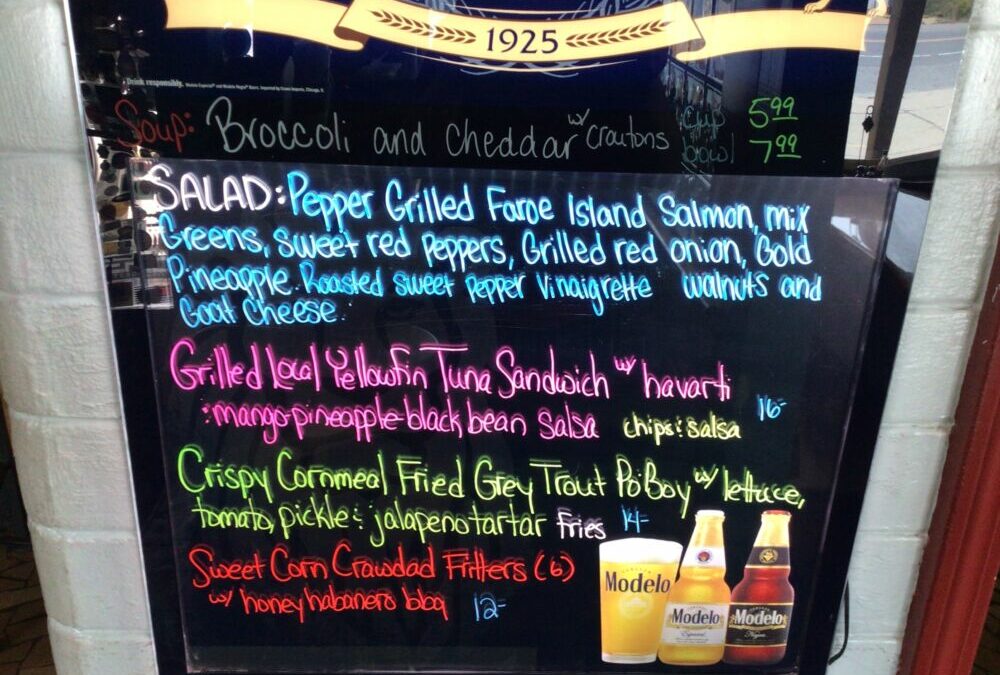 1925
Drink responsibly.
Soup: Broccoli and Cheddar w/ croutons cup 5.99
bowl 7.99
SALAD: Pepper Grilled Faroe Island Salmon, mix
Greens, sweet red peppers, Grilled red onion, Gold
Pineapple. Roasted sweet pepper vinaigrette walnuts and
Goat Cheese.
Grilled Local Yellowfin Tuna Sandwich w/ havarti
: mango-pineapple-black bean salsa chips & salsa 16-
Crispy Cornmeal Fried Grey Trout Po'Boy w/ lettuce,
tomato, pickle & jalapeno tartar fries 14-
Sweet Corn Crawdad Fritters (6)
w/ honey habanero bbq 12-
Modelo
Modelo
Especial
Modelo
Negra